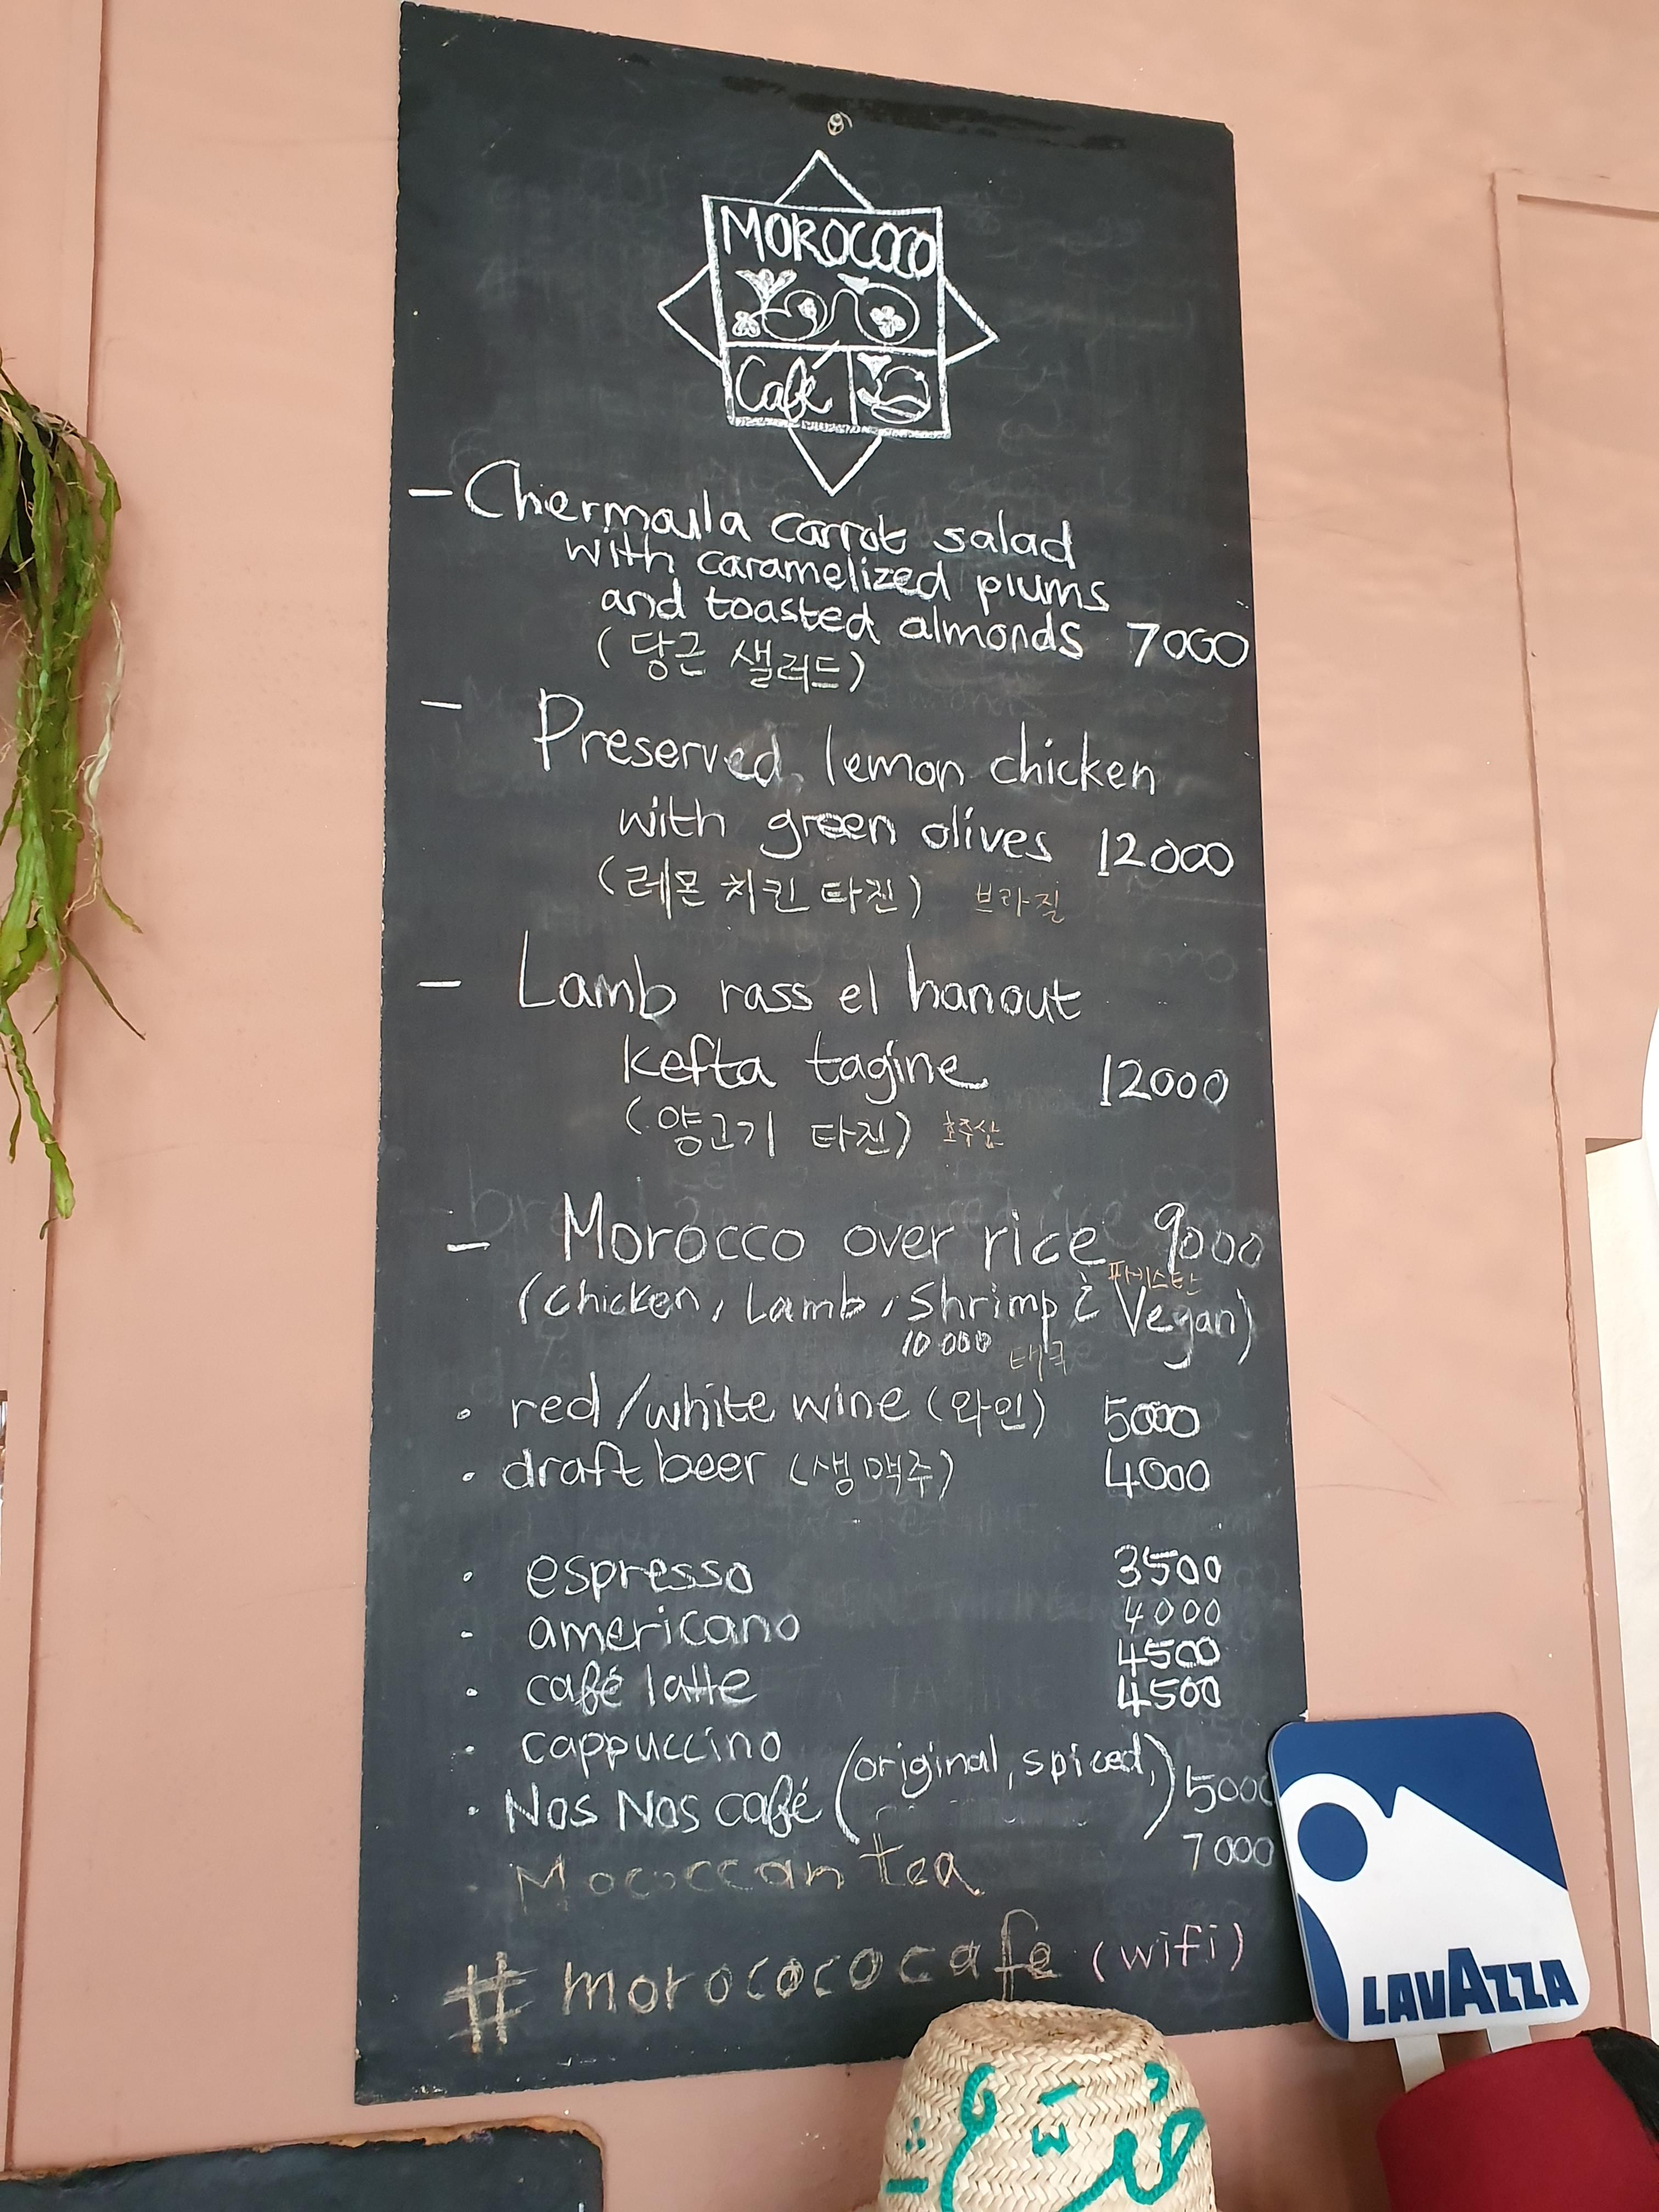 MOROCOCO
Café
- Chermoula carrot salad
with caramelized plums
and toasted almonds 7000
(당근 샐러드)
- Preserved lemon chicken
with green olives 12000
(레몬 치킨 타진) 브라질
- Lamb rass el hanout
kefta tagine 12000
(양고기 타진) 호주산
- Morocco over rice 9000
파키스탄
(chicken, Lamb, Shrimp & Vegan)
10000 태국
· red/white wine (와인) 5000
· draft beer (생맥주) 4000
· espresso 3500
· americano 4000
· café latte 4500
· cappuccino 4500
· Nos Nos café (original, spiced,) 5000
Mococcan tea 7000
# morocococafe (wifi)
LAVAZZA